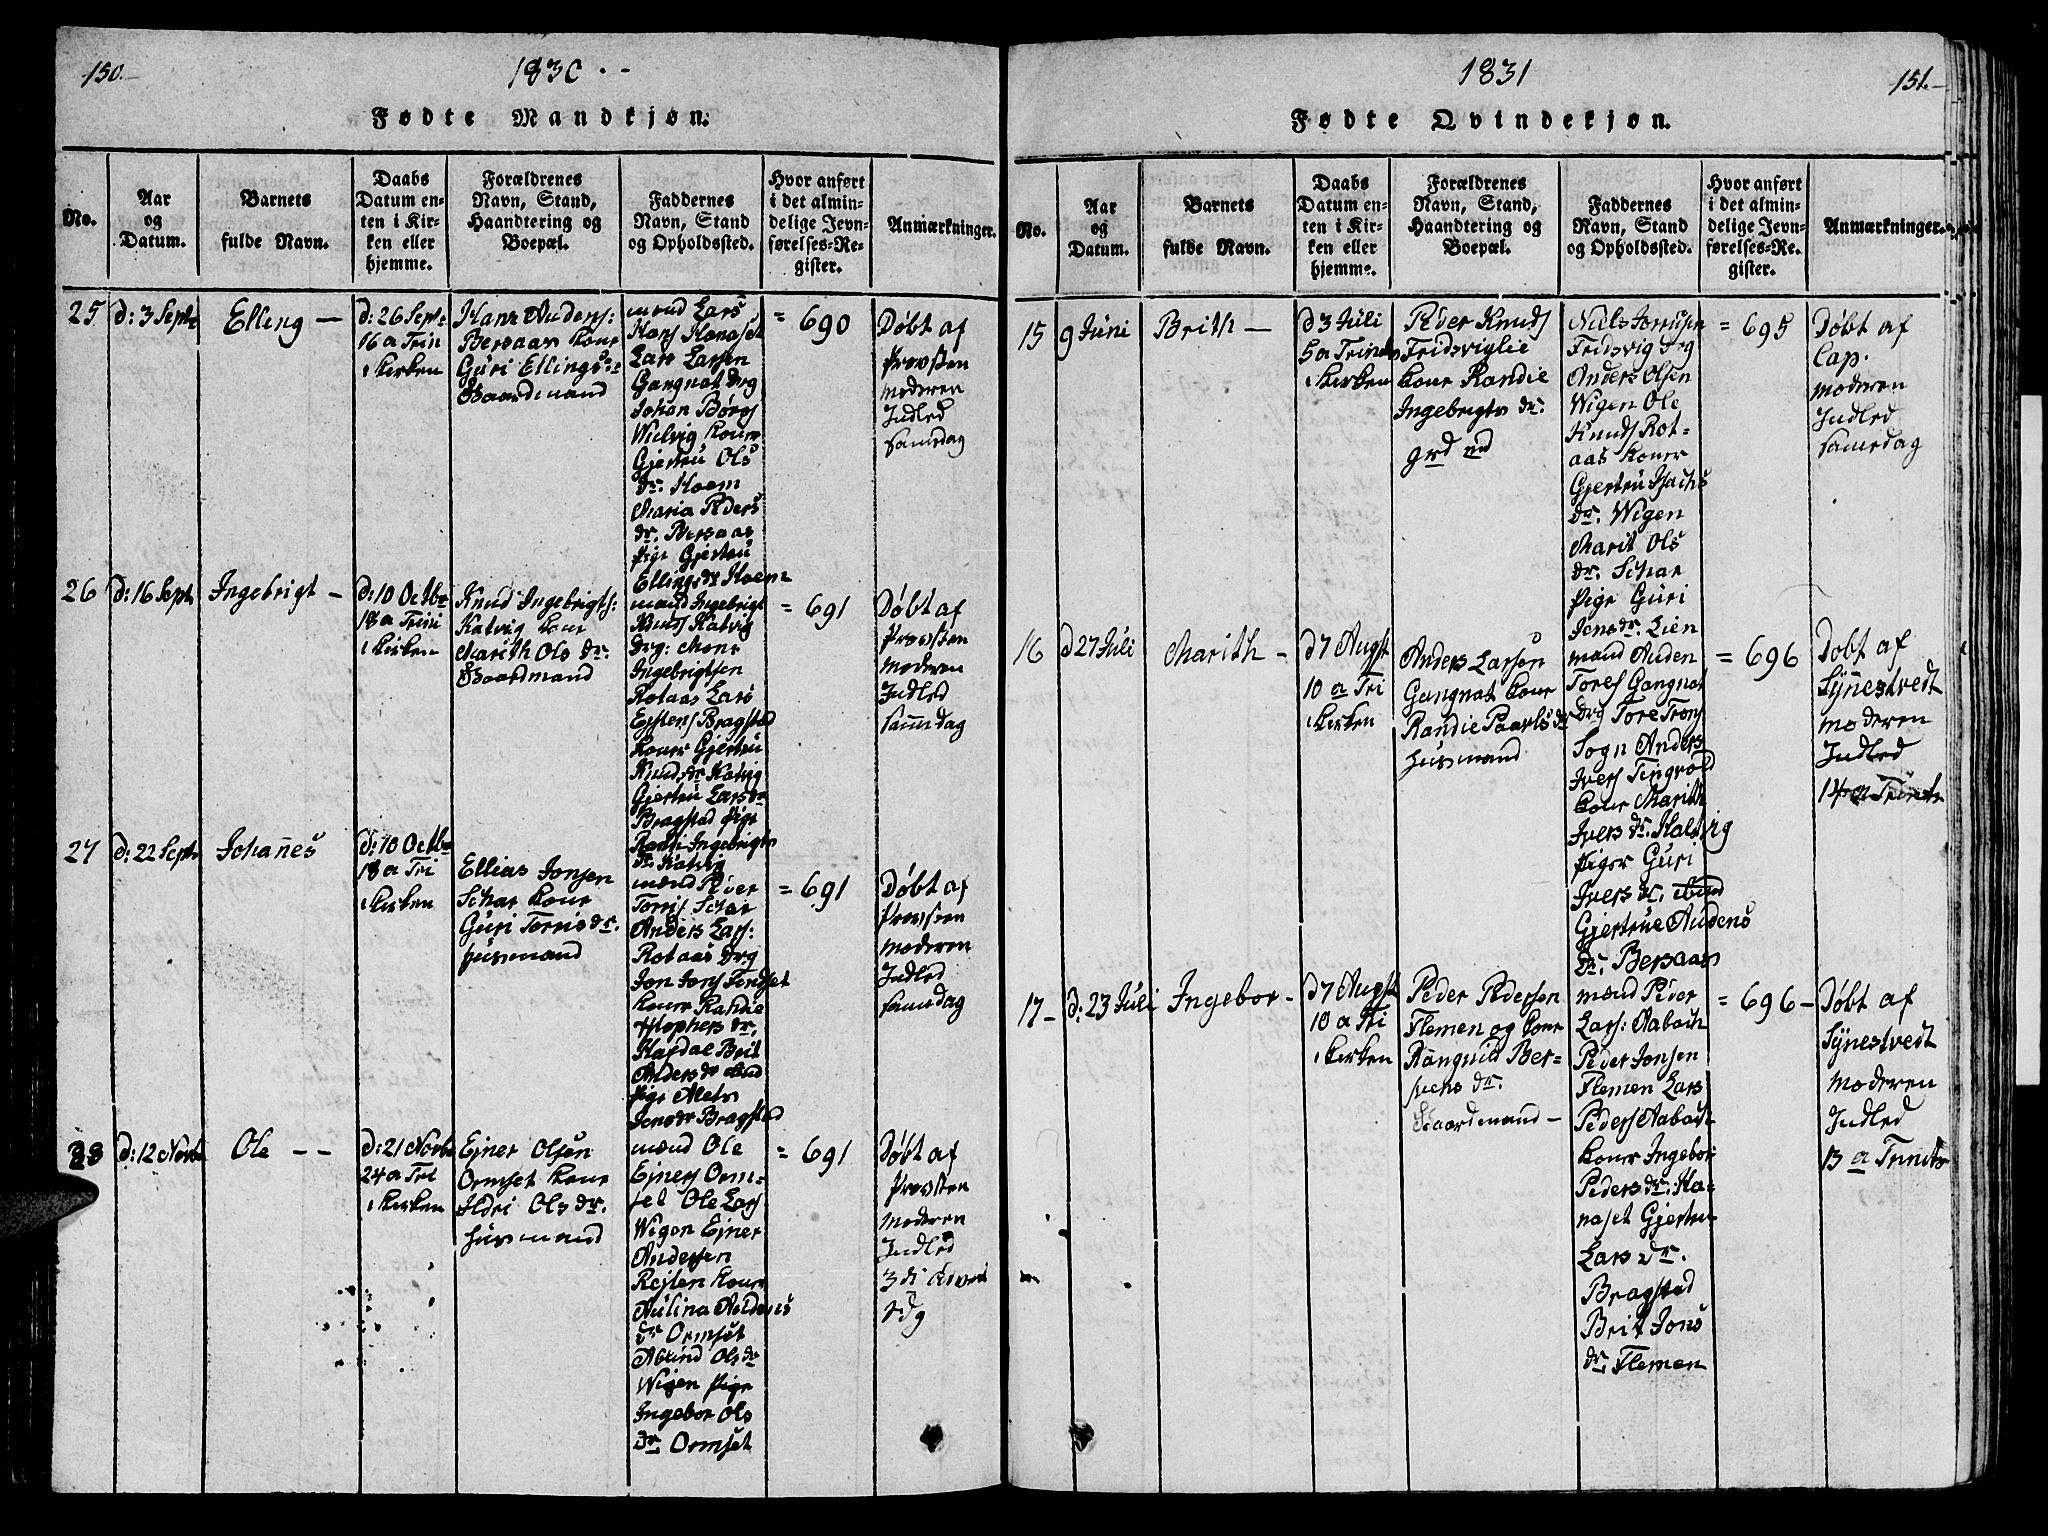 150.
1830
Fødte Mandkjøn.
No.
Aar
og
Datum.
Barnets
fulde Navn.
Daabs
Datum en-
ten i Kir-
ken eller
hjemme.
Forældrenes
Navn, Stand,
Haandtering og
Boepæl.
Faddernes
Navn, Stand
og Opholdssted.
Hvor anført
i det almin-
delige Jevn-
førelses-Re-
gister.
Anmærkninger.
25
d: 3 Septr
Elling
d: 26 Sept
16 a Trin
i kirken
Hans Audens:
Bersaas kone
Guri Ellings dr
Gaardmand
mænd Lars
Hans Hanaset
Lars Larsen
Gangnat drg
Johan Børgs
Wielvig koner
Gjertru Ols
dr. Hoem
Maria Peders
dr. Bersaas
Pige Gjertru
Ellingsdr Hoem
= 690
Døbt af
Provsten
moderen
Indled
samedag
26
d: 16 Sept
Ingebrigt
d: 10 Octbr
18 a Trin
i kirken
Knud Ingebrigts:
Katvig kone
Marith Ols dr.
Gaardmand
mænd Ingebrigt
Knuds Katvig
drg: Mons
Ingebrigtsen
Rotaas Lars
Estens Bragstad
koner Gjertru
Knudsdr Katvig
Gjertru Larsdr
Bragstad Pige
Randi Ingebrigts
dr. Katvig
= 691
Døbt af
Provsten
moderen
Indled
samedag
27
d: 22 Septr
Johannes
d: 10 Octbr
18 a Tri
i kirken
Ellias Jonsen
Schar kone
Guri Torris dr.
huusmand
mænd Peder
Torris Schar
Anders Lars:
Rotaas drg
Jon Jons
koner Randie
dr.
Brit
Anders dr
Pige
Jonsdr Bragstad
= 691
Døbt af
Provsten
moderen
Indled
samedag
28
d: 12 Novbr
Ole
d: 21 Novbr
24 a Tri
i kirken
Ejner Olsen
Ormset kone
Ildri Ols dr.
huusmand
mænd Ole
Ejners Orm-
set Ole Lars
Wigen Ejner
Andersen
Rejten koner
Aulina Audens
dr Ormset
Ols dr
Wigen Pige
Ingebor Ols
dr Ormset
= 691
Døbt af
Provsten
moderen
Indled
1831
151.
Fødte Qvindekjøn.
No.
Aar
og
Datum.
Barnets
fulde Navn.
Daabs
Datum en-
ten i Kir-
ken eller
hjemme.
Forældrenes
Navn, Stand,
Haandtering og
Boepæl.
Faddernes
Navn, Stand
og Opholdssted.
Hvor anført
i det almin-
delige Jevn-
førelses-Re-
gister.
Anmærkninger.
15
9 Juni
Brith
d 3 Juli
5 a Trin
i kirken
Peder Knuds
Fridsviglie
kone Randie
Ingebrigts dr.
Niels
Fridsvig drg
Anders Olsen
Wigen Ole
Knuds Rot-
aas koner
Gjertru Isachs
dr. Wigen
Marit Ols
dr. Schar
Pige Guri
Jonsdr. Lien
= 695
Døbt af
Cap.
moderen
Indled
samedag
16
d 27 Juli
Marith
d 7 Augst
10 a Tri
i kirken
Anders Larsen
Gangnat kone
Randie Paals dr
huusmand
mænd Auden
Tores Gangnat
drg Tore Trons
Sogn Anders
Ivers Tingvold
kone Marith
Ivers dr. Halsvig
Piger Guri
Ivers dr.
Gjertrue Audens
dr. Bersaas
= 696
Døbt af
Synestvedt
moderen
Indled
14 a Trinit
17
d: 23 Juli
Ingebor
d 7 Augst
10 a Tri
i kirken
Peder Pedersen
Flemen og kone
Rangnild Ber-
sdr.
Gaardmand
mænd Peder
Lars: Aabach
Peder Jonsen
Flemen Lars
Peders Aabach
koner Ingebor
Peders dr. Ha-
naset Gjertru
Lars dr.
Bragstad
Brit Jons
dr. Flemen
= 696
Døbt af
Synestvedt
moderen
Indled
13 a Trinit